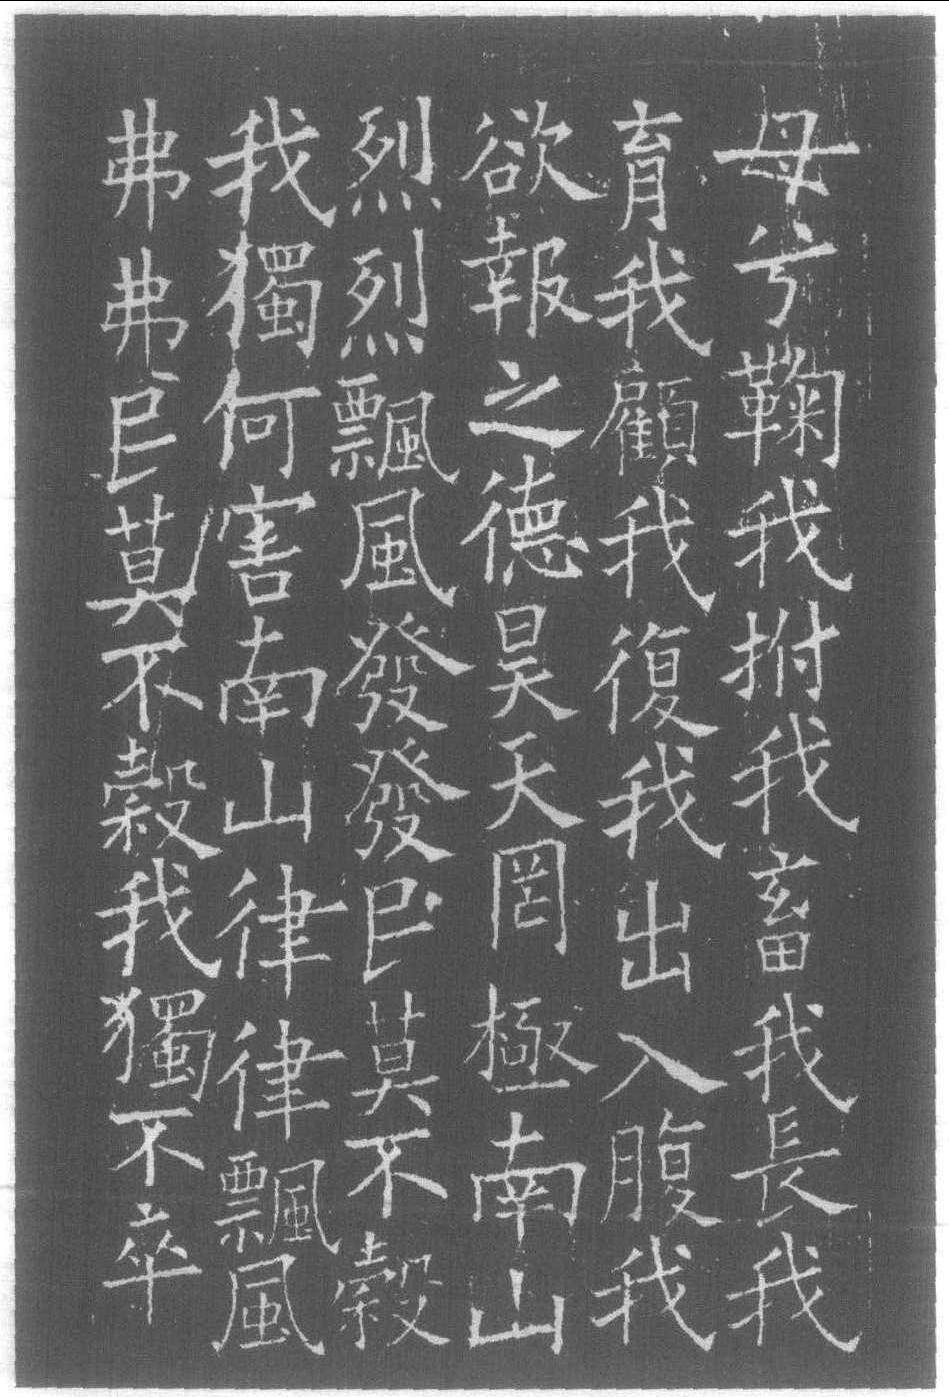 母兮鞠我拊我畜我長我
育我顧我復我出入腹我
欲報之德昊天罔極南山
烈烈飄風發發民莫不穀
我獨何害南山律律飄風
弗弗民莫不穀我獨不卒